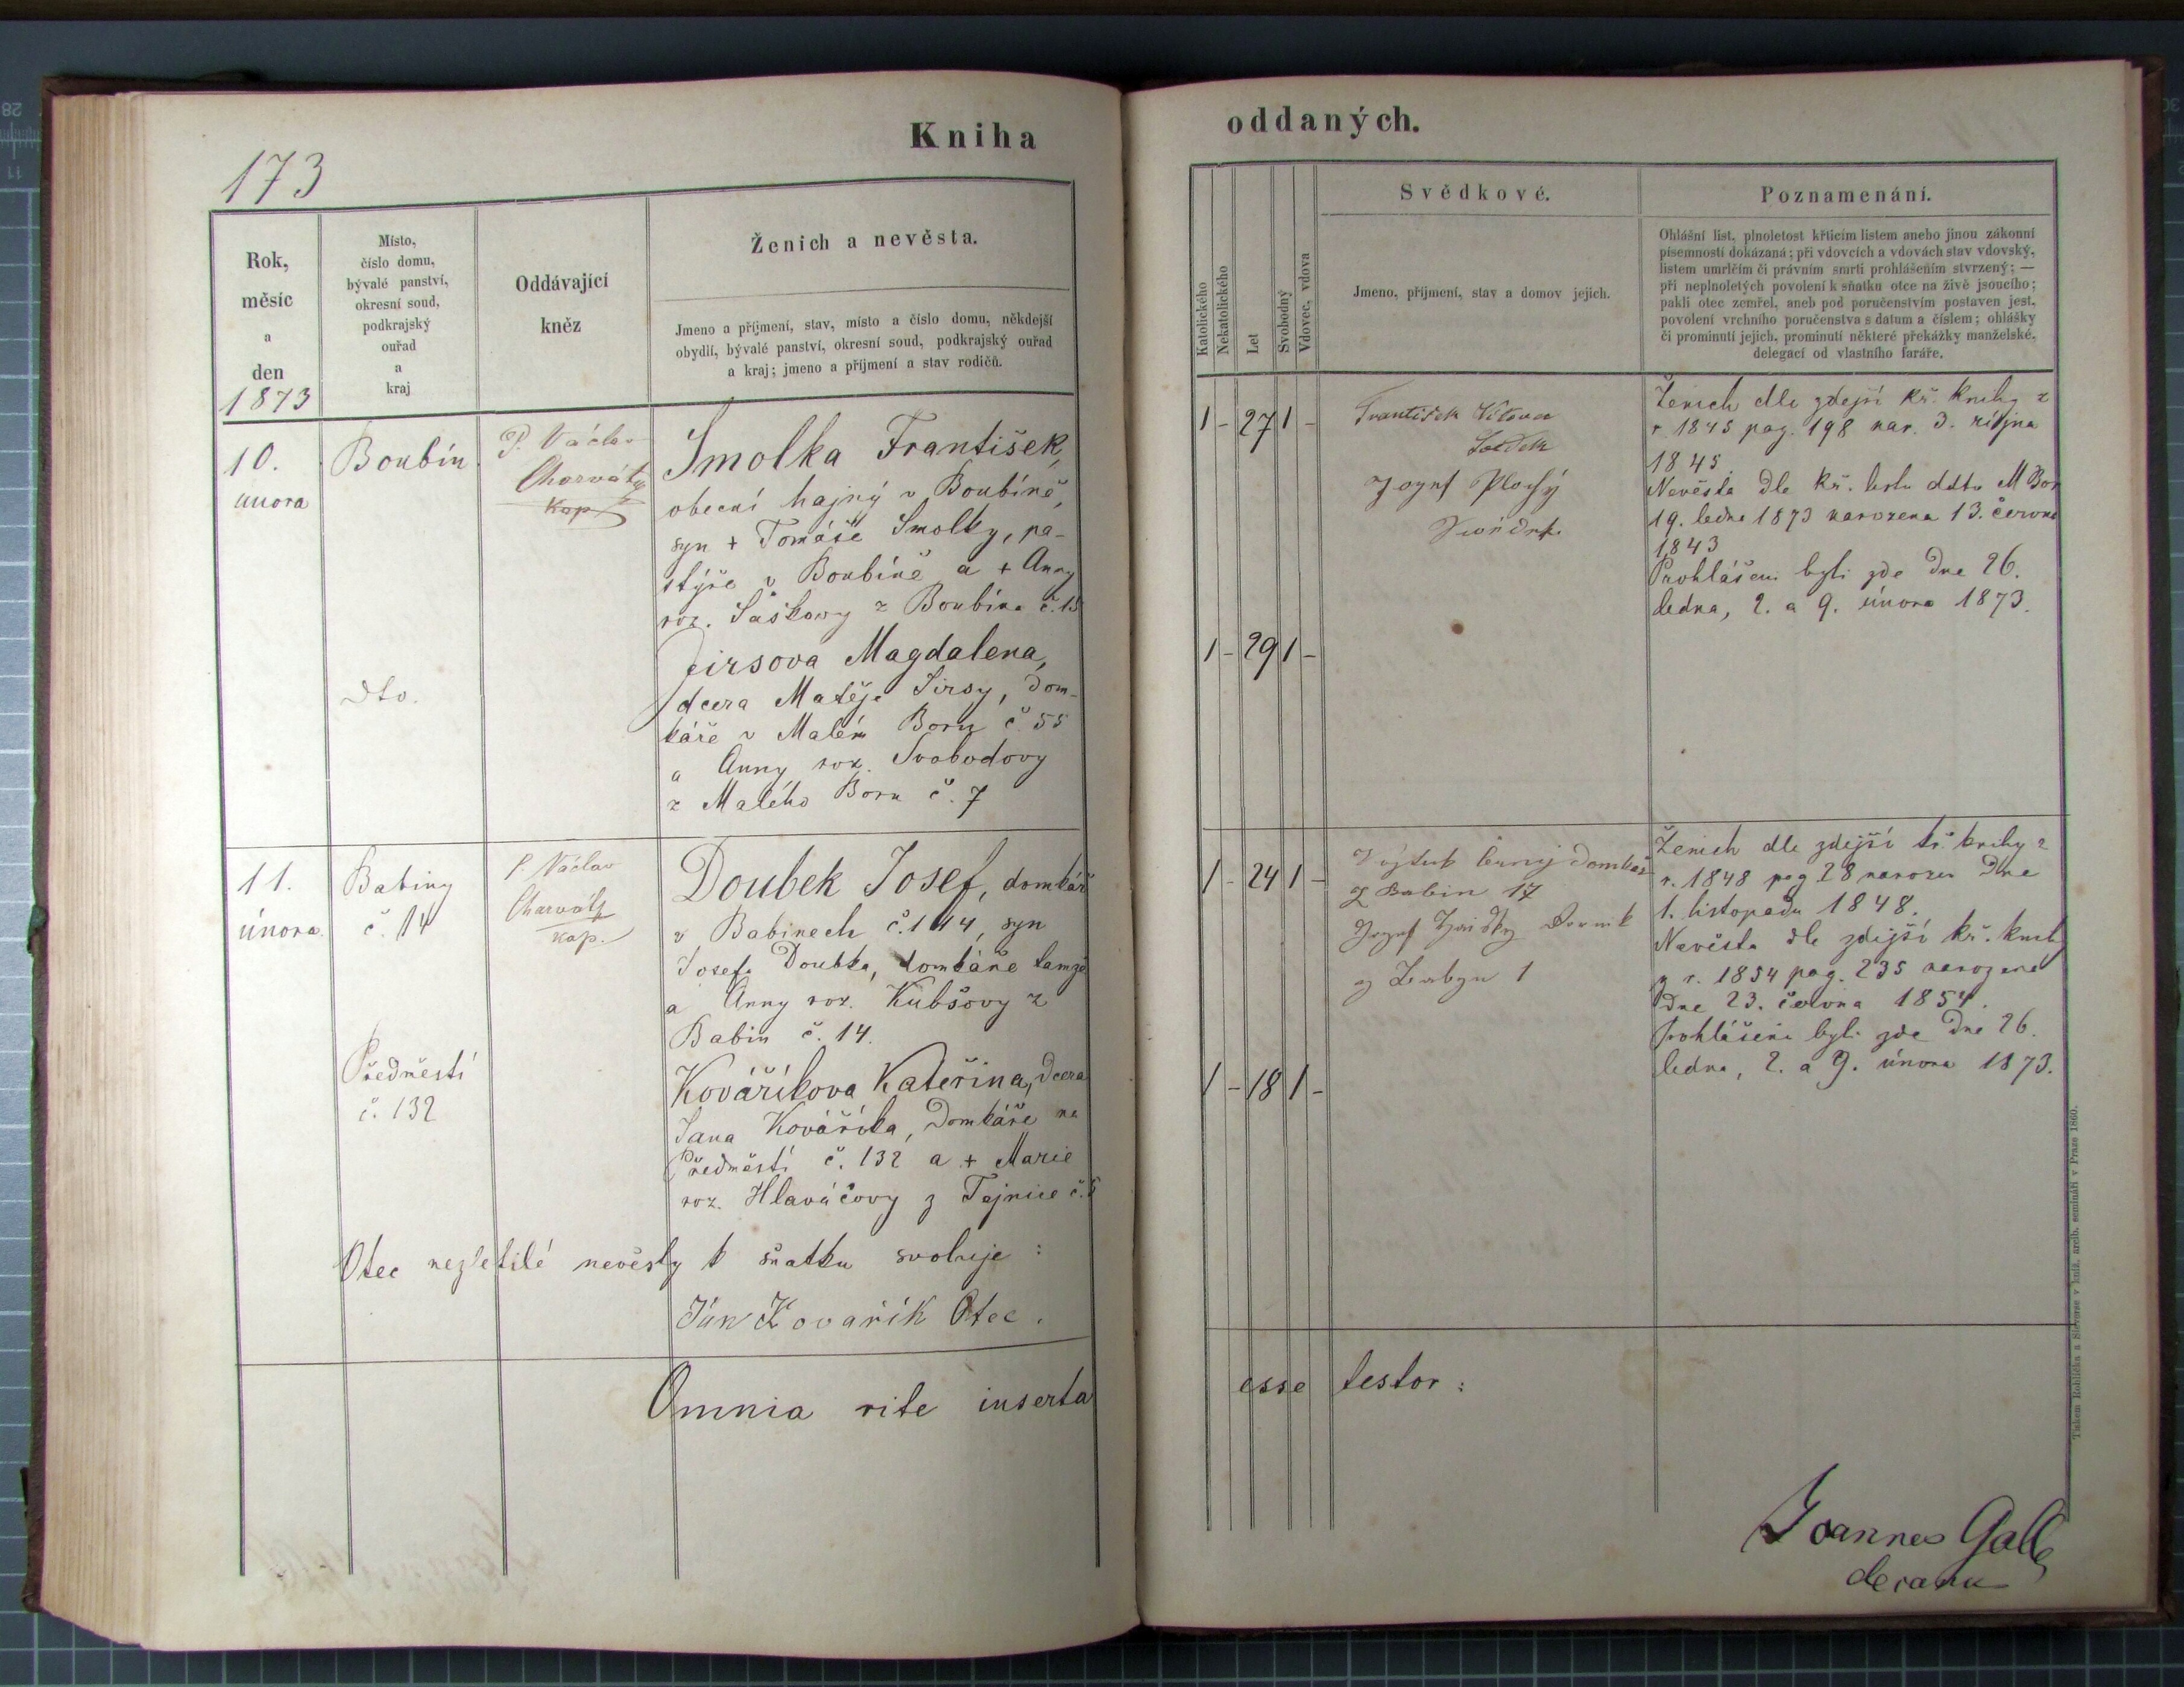 173
Kniha
Rok,
měsíc
a
den
1873
Místo,
číslo domu,
bývalé panství,
okresní soud,
podkrajský
ouřad
a
kraj
Oddávající
kněz
Ženich a nevěsta.
Jmeno a příjmení, stav, místo a číslo domu, někdejší
obydlí, bývalé panství, okresní soud, podkrajský ouřad
a kraj; jmeno a příjmení a stav rodičů.
10.
února
Boubín
P. Václav
Charvát
kap
Smolka František,
obecní hajný v Boubíně,
syn + Tomáše Smolky, pa-
stýře v Boubíně a + Anny
roz. Saškovy z Boubína č. 15
dto.
Jirsova Magdalena,
dcera Matěje Jirsy, dom-
káře v Malém Boru č 55
a Anny roz. Svobodovy
z Malého Boru č. 7
11.
února
Babiny
č. 14
P. Václav
Charvát
kap.
Doubek Josef, domkář
v Babinech č. 14, syn
Josefa Doubka, domkáře tamže
a Anny roz. Kubšovy z
Babin č. 14.
Předměstí
č. 132
Kováříkova Kateřina, dcera
Jana Kováříka, domkáře na
Předměstí č. 132 a + Marie
roz. Hlaváčovy z Tajnice č. 5
Otec nezletilé nevěsty k sňatku svoluje :
Ján Kovařík Otec.
Omnia rite inserta
oddaných.
Katolického
Nekatolického
Let
Svobodný
Vdovec, vdova
Svědkové.
Jmeno, příjmení, stav a domov jejich.
Poznamenání.
Ohlášní list, plnoletost křticím listem anebo jinou zákonní
písemností dokázaná; při vdovcích a vdovách stav vdovský,
listem umrlčím či právním smrti prohlášením stvrzený; —
při neplnoletých povolení k sňatku otce na živě jsoucího;
pakli otec zemřel, aneb pod poručenstvím postaven jest,
povolení vrchního poručenstva s datum a číslem; ohlášky
či prominutí jejich, prominutí některé překážky manželské,
delegací od vlastního faráře.
1 - 27 1 -
František
Josef Plochý
Ženich dle zdejší kř. knihy z
r. 1845 pag. 198 nar. 3. října
1845.
Nevěsta dle kř. listu ddto M Bor
19. ledna 1873 narozena 13. června
1843
Prohlášeni byli zde dne 26.
ledna, 2. a 9. února 1873.
1 - 29 1 -
1 - 24 1 -
Vojtěch Černý domkař
z Babin 17
Josef
1
Ženich dle zdejší kř. knihy z
r. 1848 pag 28 narozen dne
1. listopadu 1848.
Nevěsta dle zdejší kř. knihy
z r. 1854 pag. 235 narozena
dne 23. června 1854.
Prohlášeni byli zde dne 26.
ledna, 2. a 9. února 1873.
1 - 18 1 -
esse testor :
Joannes Galle
decanus
Tiskem Rohlíčka a Sieverse v kníž. arcib. semináři v Praze 1860.